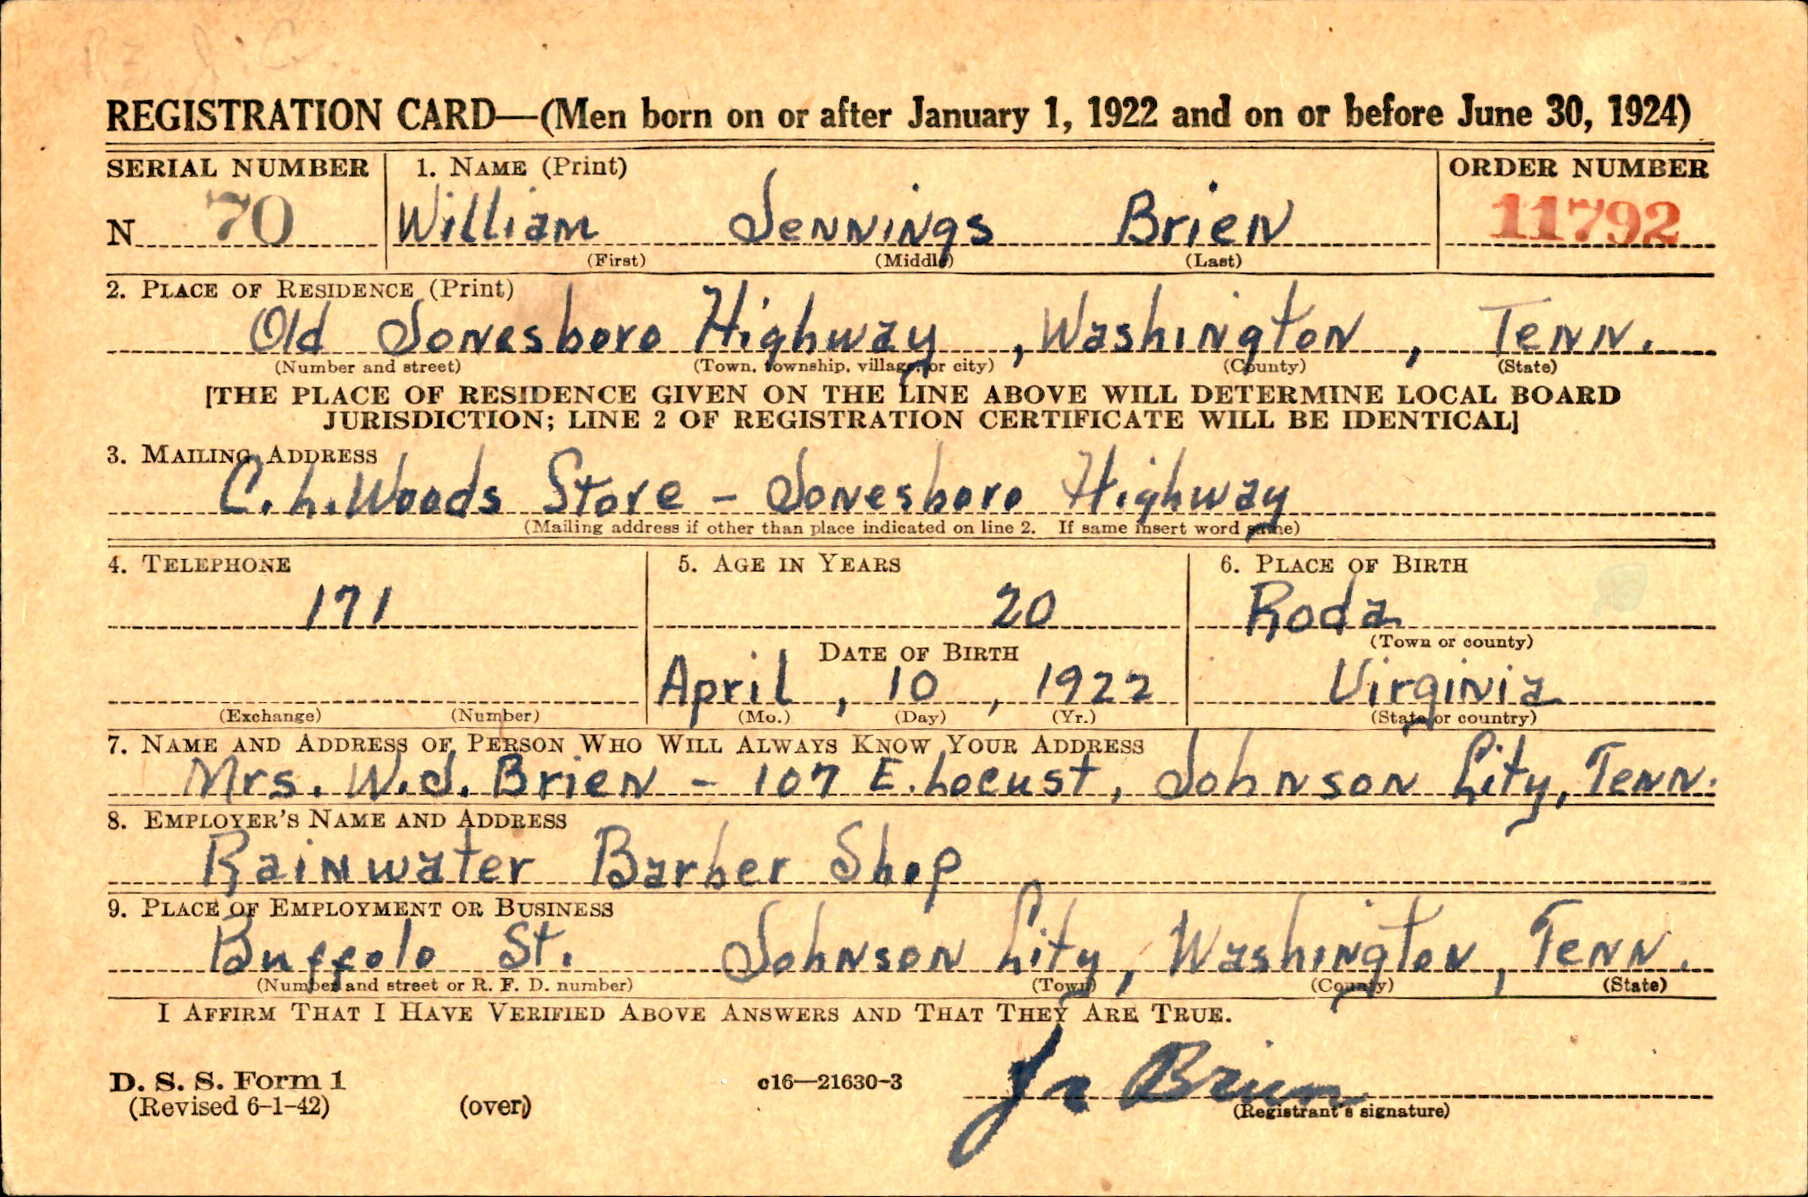 REGISTRATION CARD—(Men born on or after January 1, 1922 and on or before June 30, 1924)
SERIAL NUMBER 1. NAME (Print) ORDER NUMBER
N 70 William Jennings Brien 11792
(First) (Middle) (Last)
2. PLACE OF RESIDENCE (Print)
Old Jonesboro Highway, Washington, Tenn.
(Number and street) (Town, township, village, or city) (County) (State)
[THE PLACE OF RESIDENCE GIVEN ON THE LINE ABOVE WILL DETERMINE LOCAL BOARD
JURISDICTION; LINE 2 OF REGISTRATION CERTIFICATE WILL BE IDENTICAL]
3. MAILING ADDRESS
C.L. Woods Store - Jonesboro Highway
(Mailing address if other than place indicated on line 2. If same insert word same)
4. TELEPHONE 5. AGE IN YEARS 6. PLACE OF BIRTH
171 20 Roda
(Town or county)
DATE OF BIRTH
April, 10, 1922 Virginia
(Exchange) (Number) (Mo.) (Day) (Yr.) (State or country)
7. NAME AND ADDRESS OF PERSON WHO WILL ALWAYS KNOW YOUR ADDRESS
Mrs. W.J. Brien - 107 E. Locust, Johnson City, Tenn.
8. EMPLOYER'S NAME AND ADDRESS
Rainwater Barber Shop
9. PLACE OF EMPLOYMENT OR BUSINESS
Buffolo St. Johnson City, Washington, Tenn.
(Number and street or R. F. D. number) (Town) (County) (State)
I AFFIRM THAT I HAVE VERIFIED ABOVE ANSWERS AND THAT THEY ARE TRUE.
D. S. S. Form 1 c16—21630-3 Jr Brien
(Revised 6-1-42) (over) (Registrant's signature)